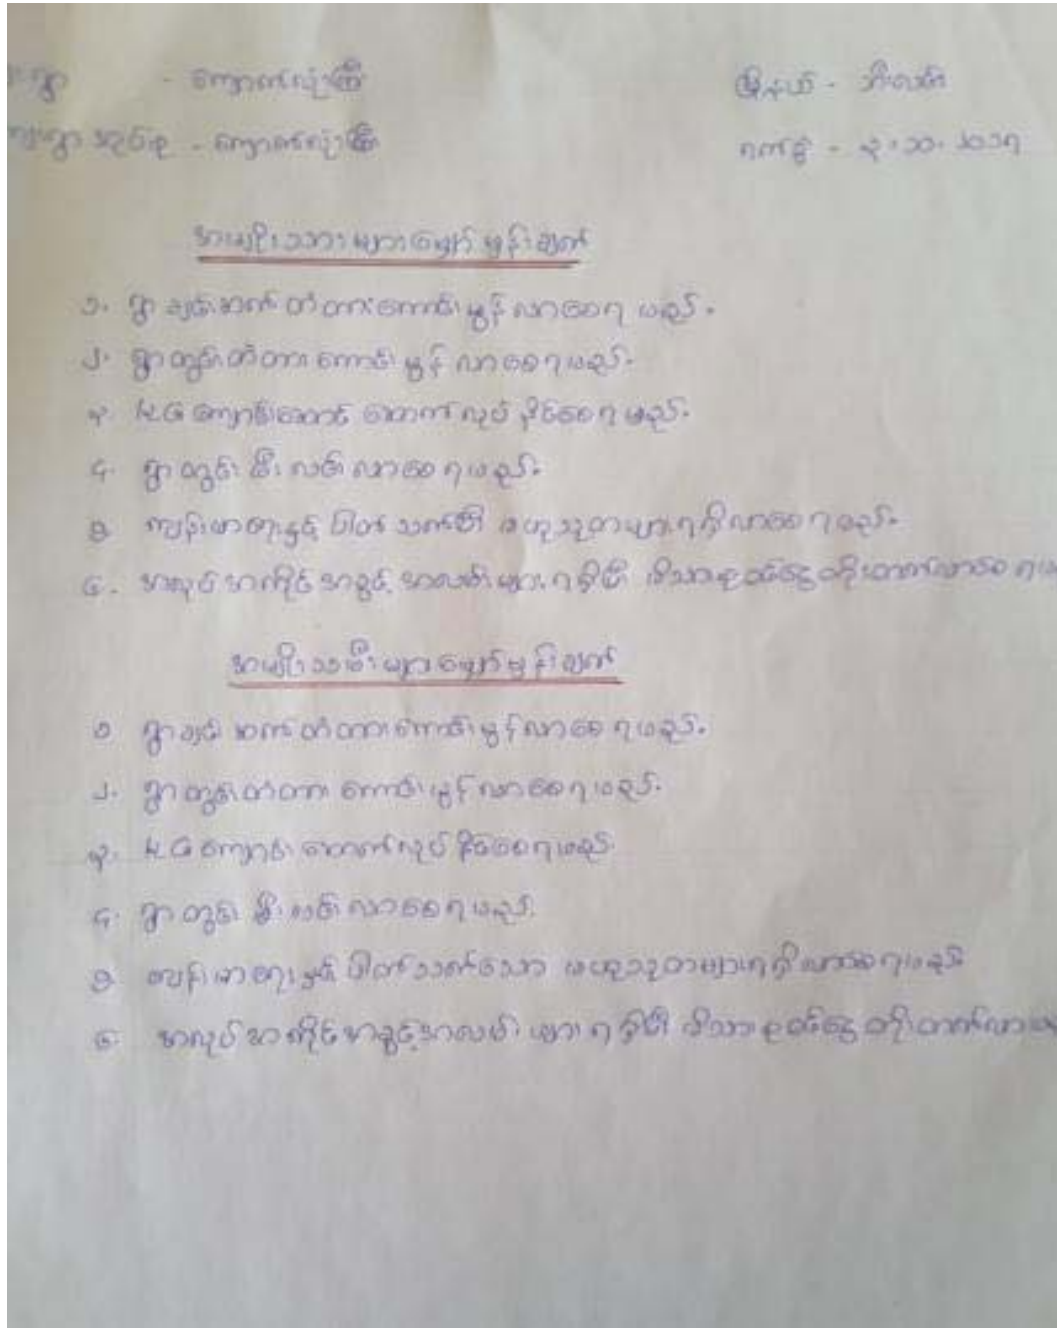 ကျေးရွာ - ကျောက်လုံးကြီး မြို့နယ် - ဘီးလင်း
ကျေးရွာအုပ်စု - ကျောက်လုံးကြီး ရက်စွဲ - ၃.၁၀.၂၀၁၇
အမျိုးသားများမျှော်မှန်းချက်
၁. ရွာချင်းဆက်တံတားကောင်းမွန်လာစေရမည်.
၂. ရွာတွင်းတံတားကောင်းမွန်လာစေရမည်.
၃. KG ကျောင်းဆောင် ဆောက်လုပ်နိုင်စေရမည်.
၄. ရွာတွင်းမီးလင်းလာစေရမည်.
၅. ကျန်းမာရေးနှင့် ပါတ်သက်ပြီး ဗဟုသုတများရရှိလာစေရမည်.
၆. အလုပ်အကိုင်အခွင့်အလမ်းများရရှိပြီး မိသားစုဝင်ငွေတိုးတက်လာစေရ
အမျိုးသမီးများမျှော်မှန်းချက်
၁ ရွာချင်းဆက်တံတားကောင်းမွန်လာစေရမည်.
၂. ရွာတွင်းတံတားကောင်းမွန်လာစေရမည်.
၃. KG ကျောင်းဆောက်လုပ်နိုင်စေရမည်.
၄. ရွာတွင်းမီးလင်းလာစေရမည်.
၅ ကျန်းမာရေးနှင့် ပါတ်သက်သော ဗဟုသုတများရရှိလာစေရမည်
၆ အလုပ်အကိုင်အခွင့်အလမ်းများရရှိပြီး မိသားစုဝင်ငွေတိုးတက်လာ